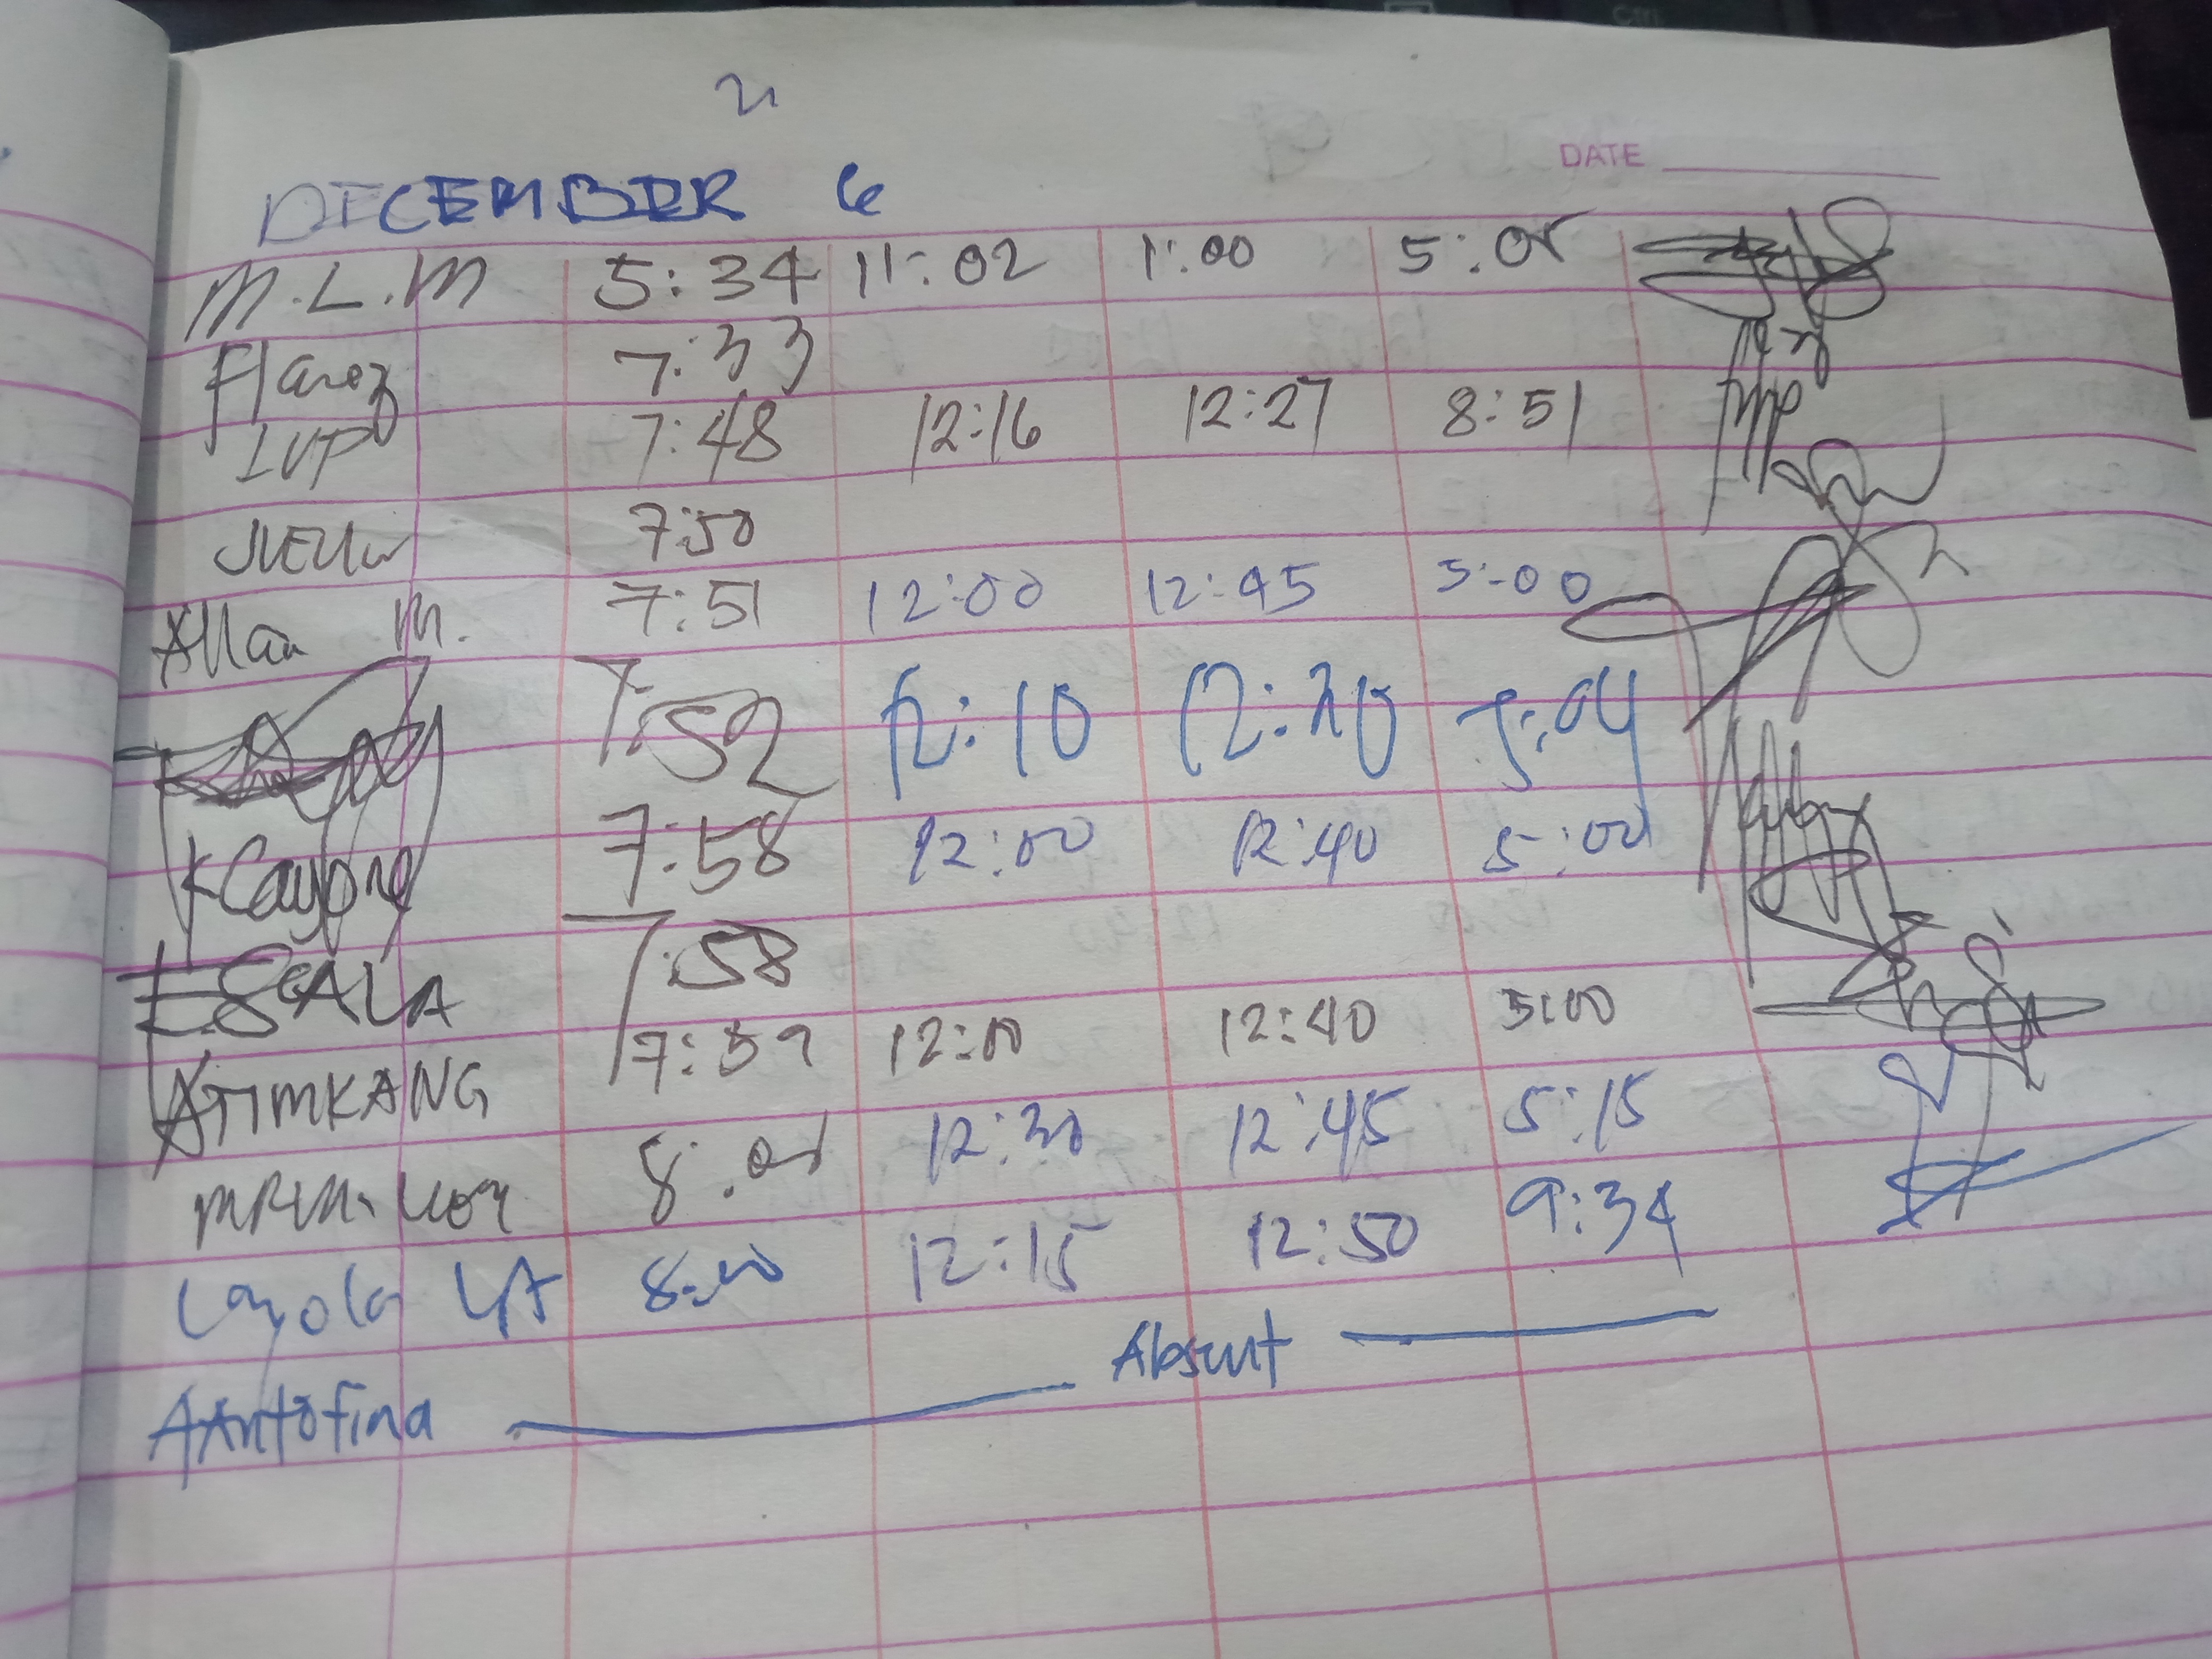 DATE
DECEMBER 6
M.L.M 5:34 11:02 1:00 5:05
Flarez 7:33
LVP 7:48 12:16 12:27 8:51
7:50
Allan M. 7:51 12:00 12:45 5:00
7:52 12:10 12:20 5:04
KCayong 7:58 12:00 12:40 5:00
ESCALA 7:58
ATIMKANG 7:59 12:00 12:40 5:00
8:00 12:30 12:45 5:15
Layola LA 8:00 12:15 12:50 9:34
AAntofina Absent